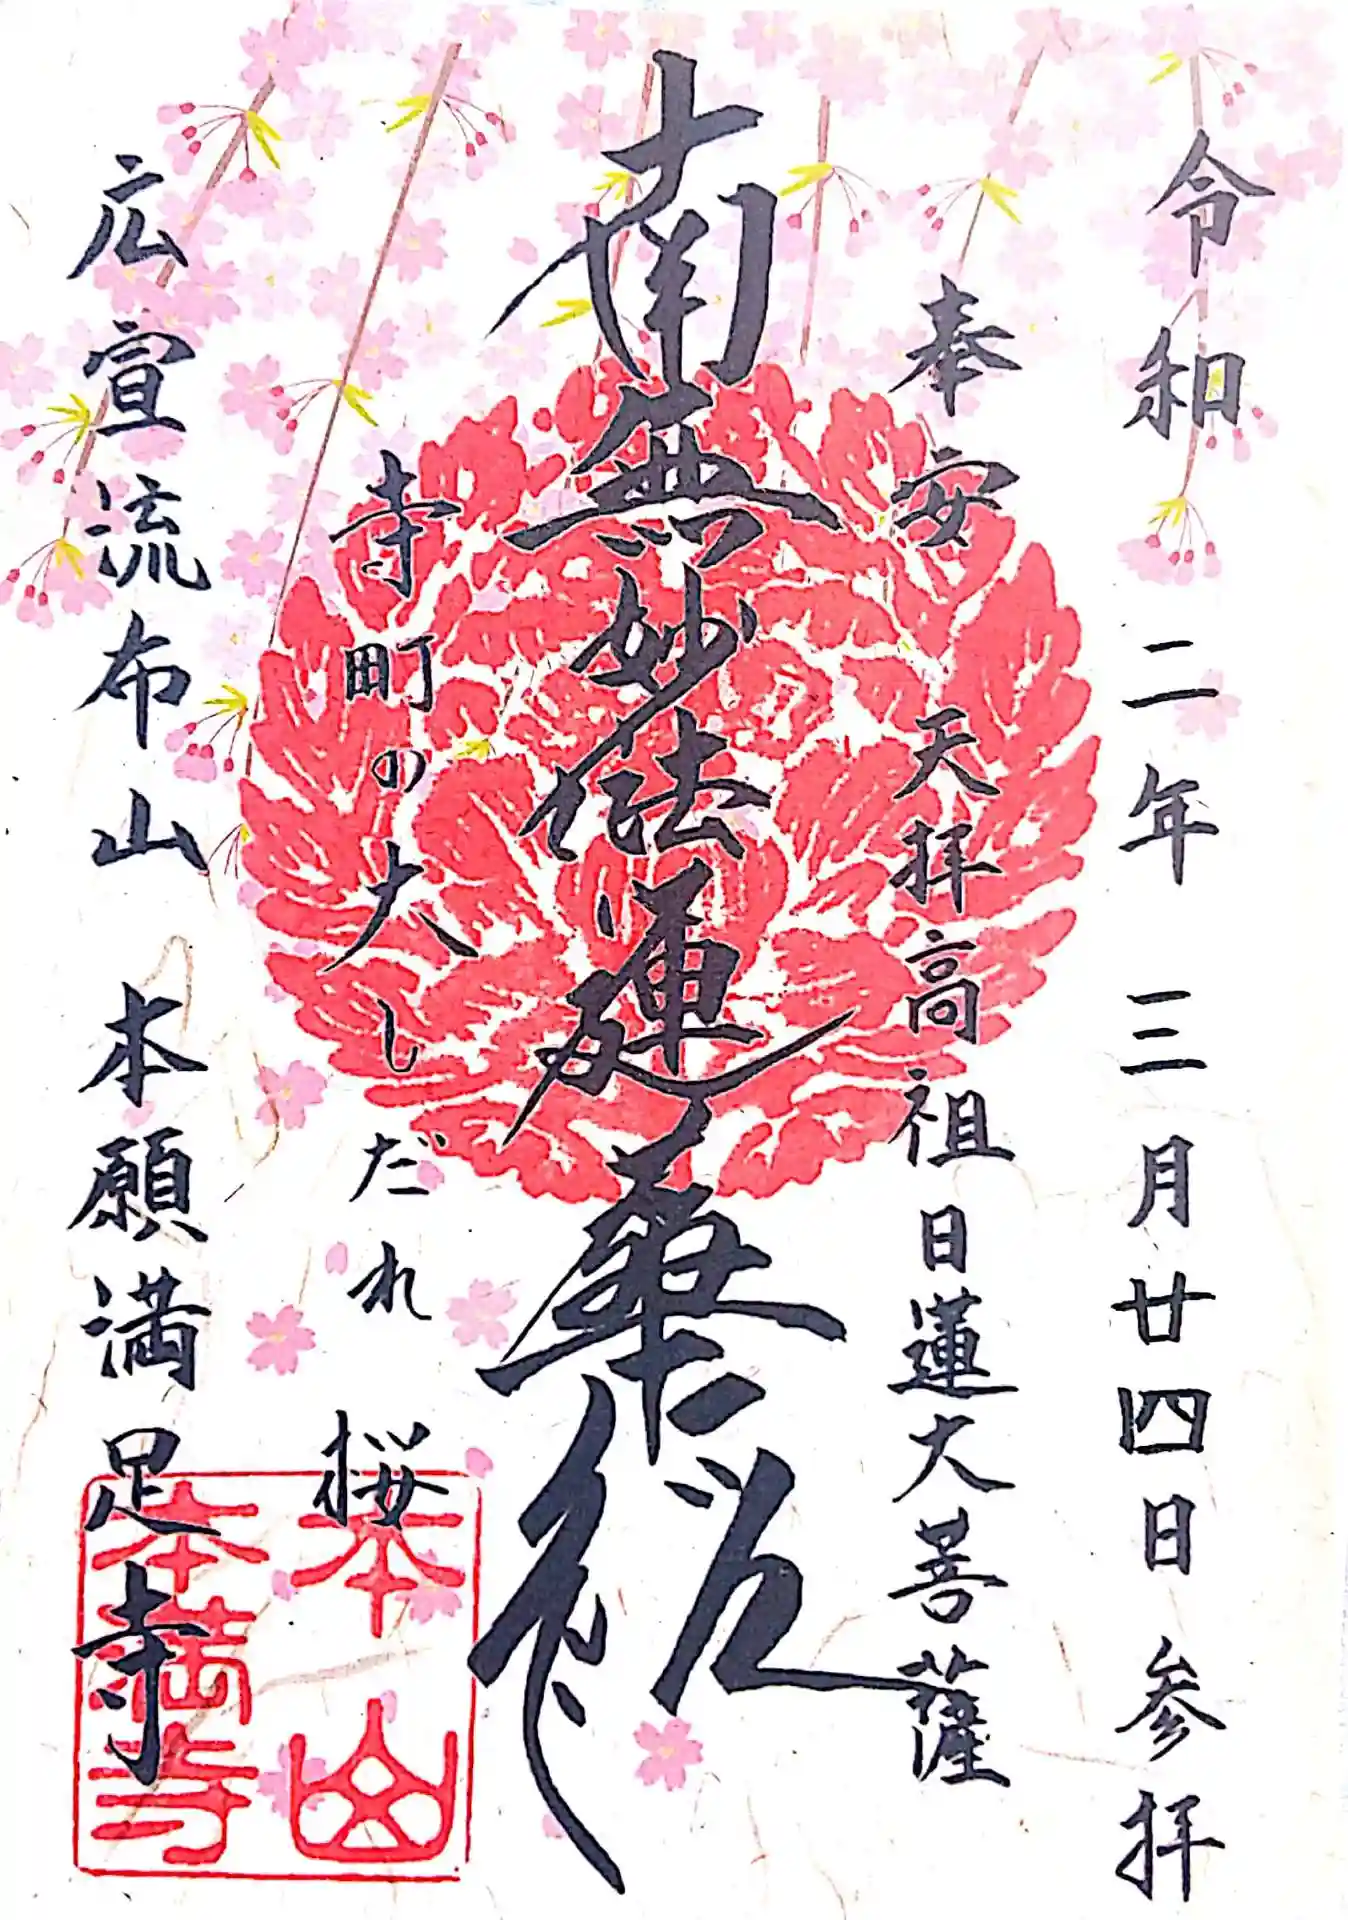 令和二年 三月廿四日 参拝
奉安 天拝高祖日蓮大菩薩
南無妙法蓮華経
寺町の大しだれ 桜
広宣流布山 本願満足寺
本山
本満寺